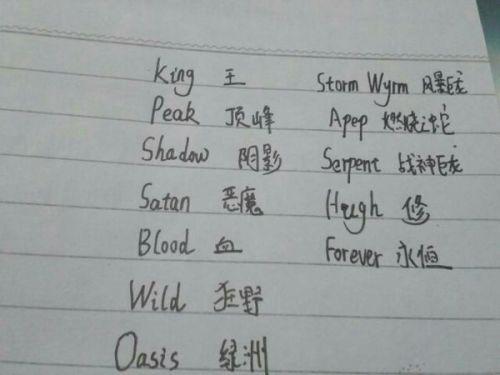 King 王 Storm Wyrm 风暴巨龙
Peak 顶峰 Apep 燃烧之蛇
Shadow 阴影 Serpent 战神巨龙
Satan 恶魔 Hugh 修
Blood 血 Forever 永恒
Wild 狂野
Oasis 绿洲